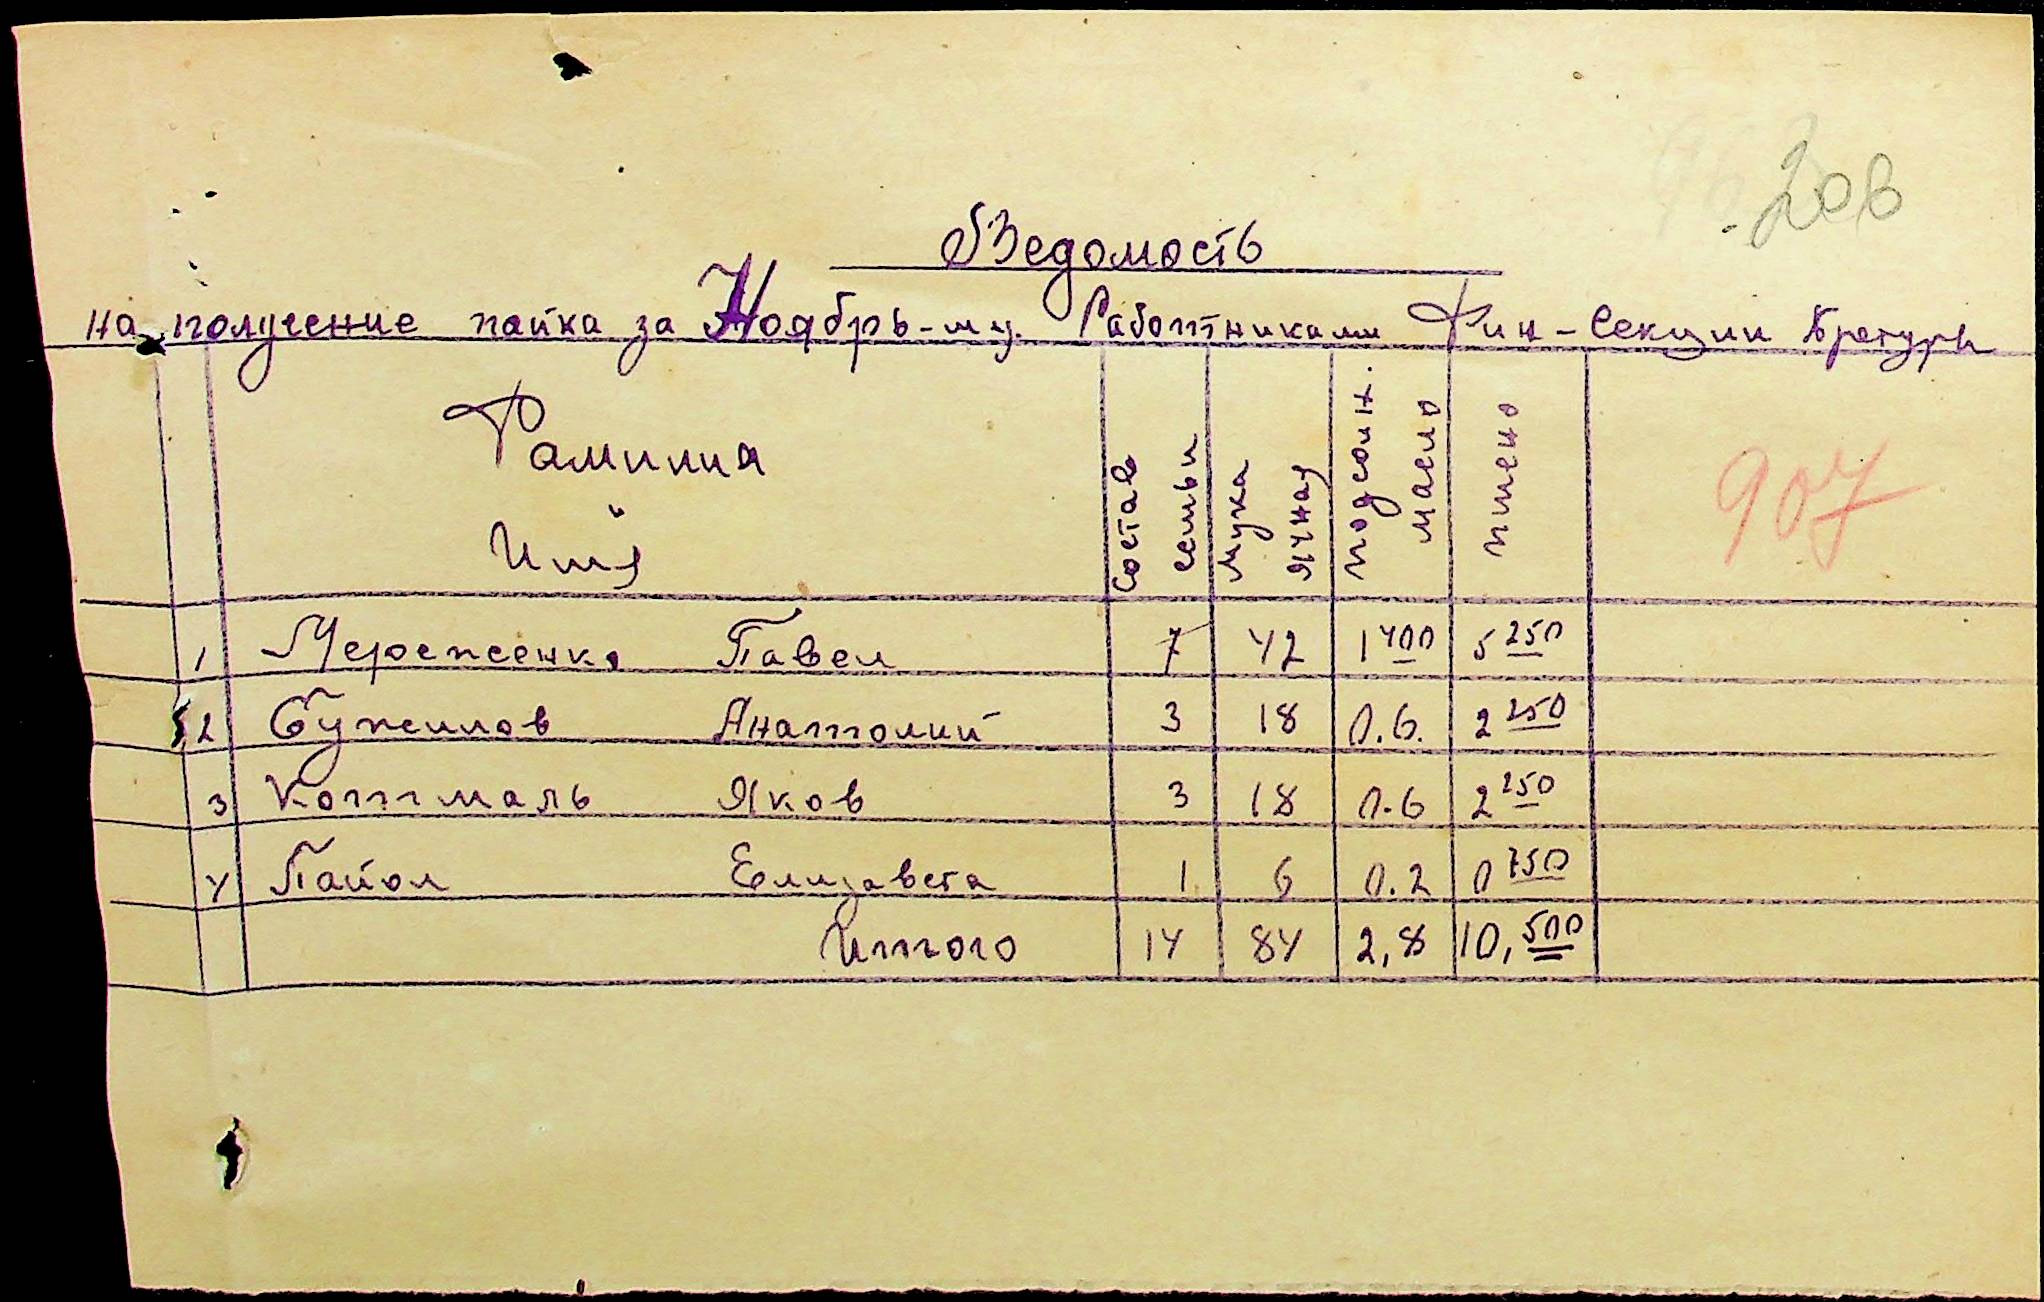 208
Ведомость
на получение пайка за Ноябрь м-ц. Работниками Фин-Секции
Фамилия Имя Состав семьи Мука ячная подсолн. масло пшено
907
1 Мереженко Павел 7 42 1 400 5 250
2 Сужилов Анатолий 3 18 0.6. 2 250
3 Котмаль Яков 3 18 0.6 2 250
4 Пайол Елизавета 1 6 0.2 0 750
Итого 14 84 2,8 10,500